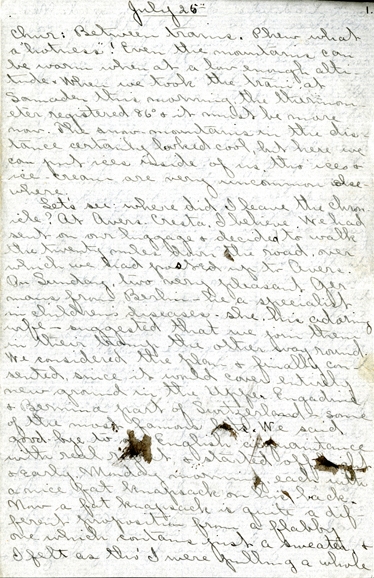 July 26th
1.
Chur: Between trains. Phew what
"hotness"! Even the mountains can
be warm when at a low enough alti-
tude. When we took the train at
Samaden this morning the thermom-
eter registered 86° & it must be more
now. The snow mountains in the dis-
tance certainly looked cool, but here we
can put ices inside of us, tho ices &
ice cream are very uncommon else-
where.
Let's see: where did I leave the chron-
icle? At Avers-Cresta, I believe. We had
sent on our luggage & decided to walk
the twenty miles down the road, over
which we had posted up to Avers.
On Sunday, two very pleasant Ger-
mans from Berlin - he a specialist
in children's diseases - she, his adoring
wife - suggested that we join them
in their tramp the other way round.
We considered the plan & finally con-
sented, since it would cover entirely
new ground in the Upper Engadine
& Bernina part of Switzerland & some
of the most famous We said
good bye to English acquaintance
with real & started off
early Monday morning each with
a nice fat knapsack on his back.
Now a fat knapsack is quite a dif-
ferent proposition from a flabby
one which contains just a sweater, &
I felt as tho' I were pulling a whole